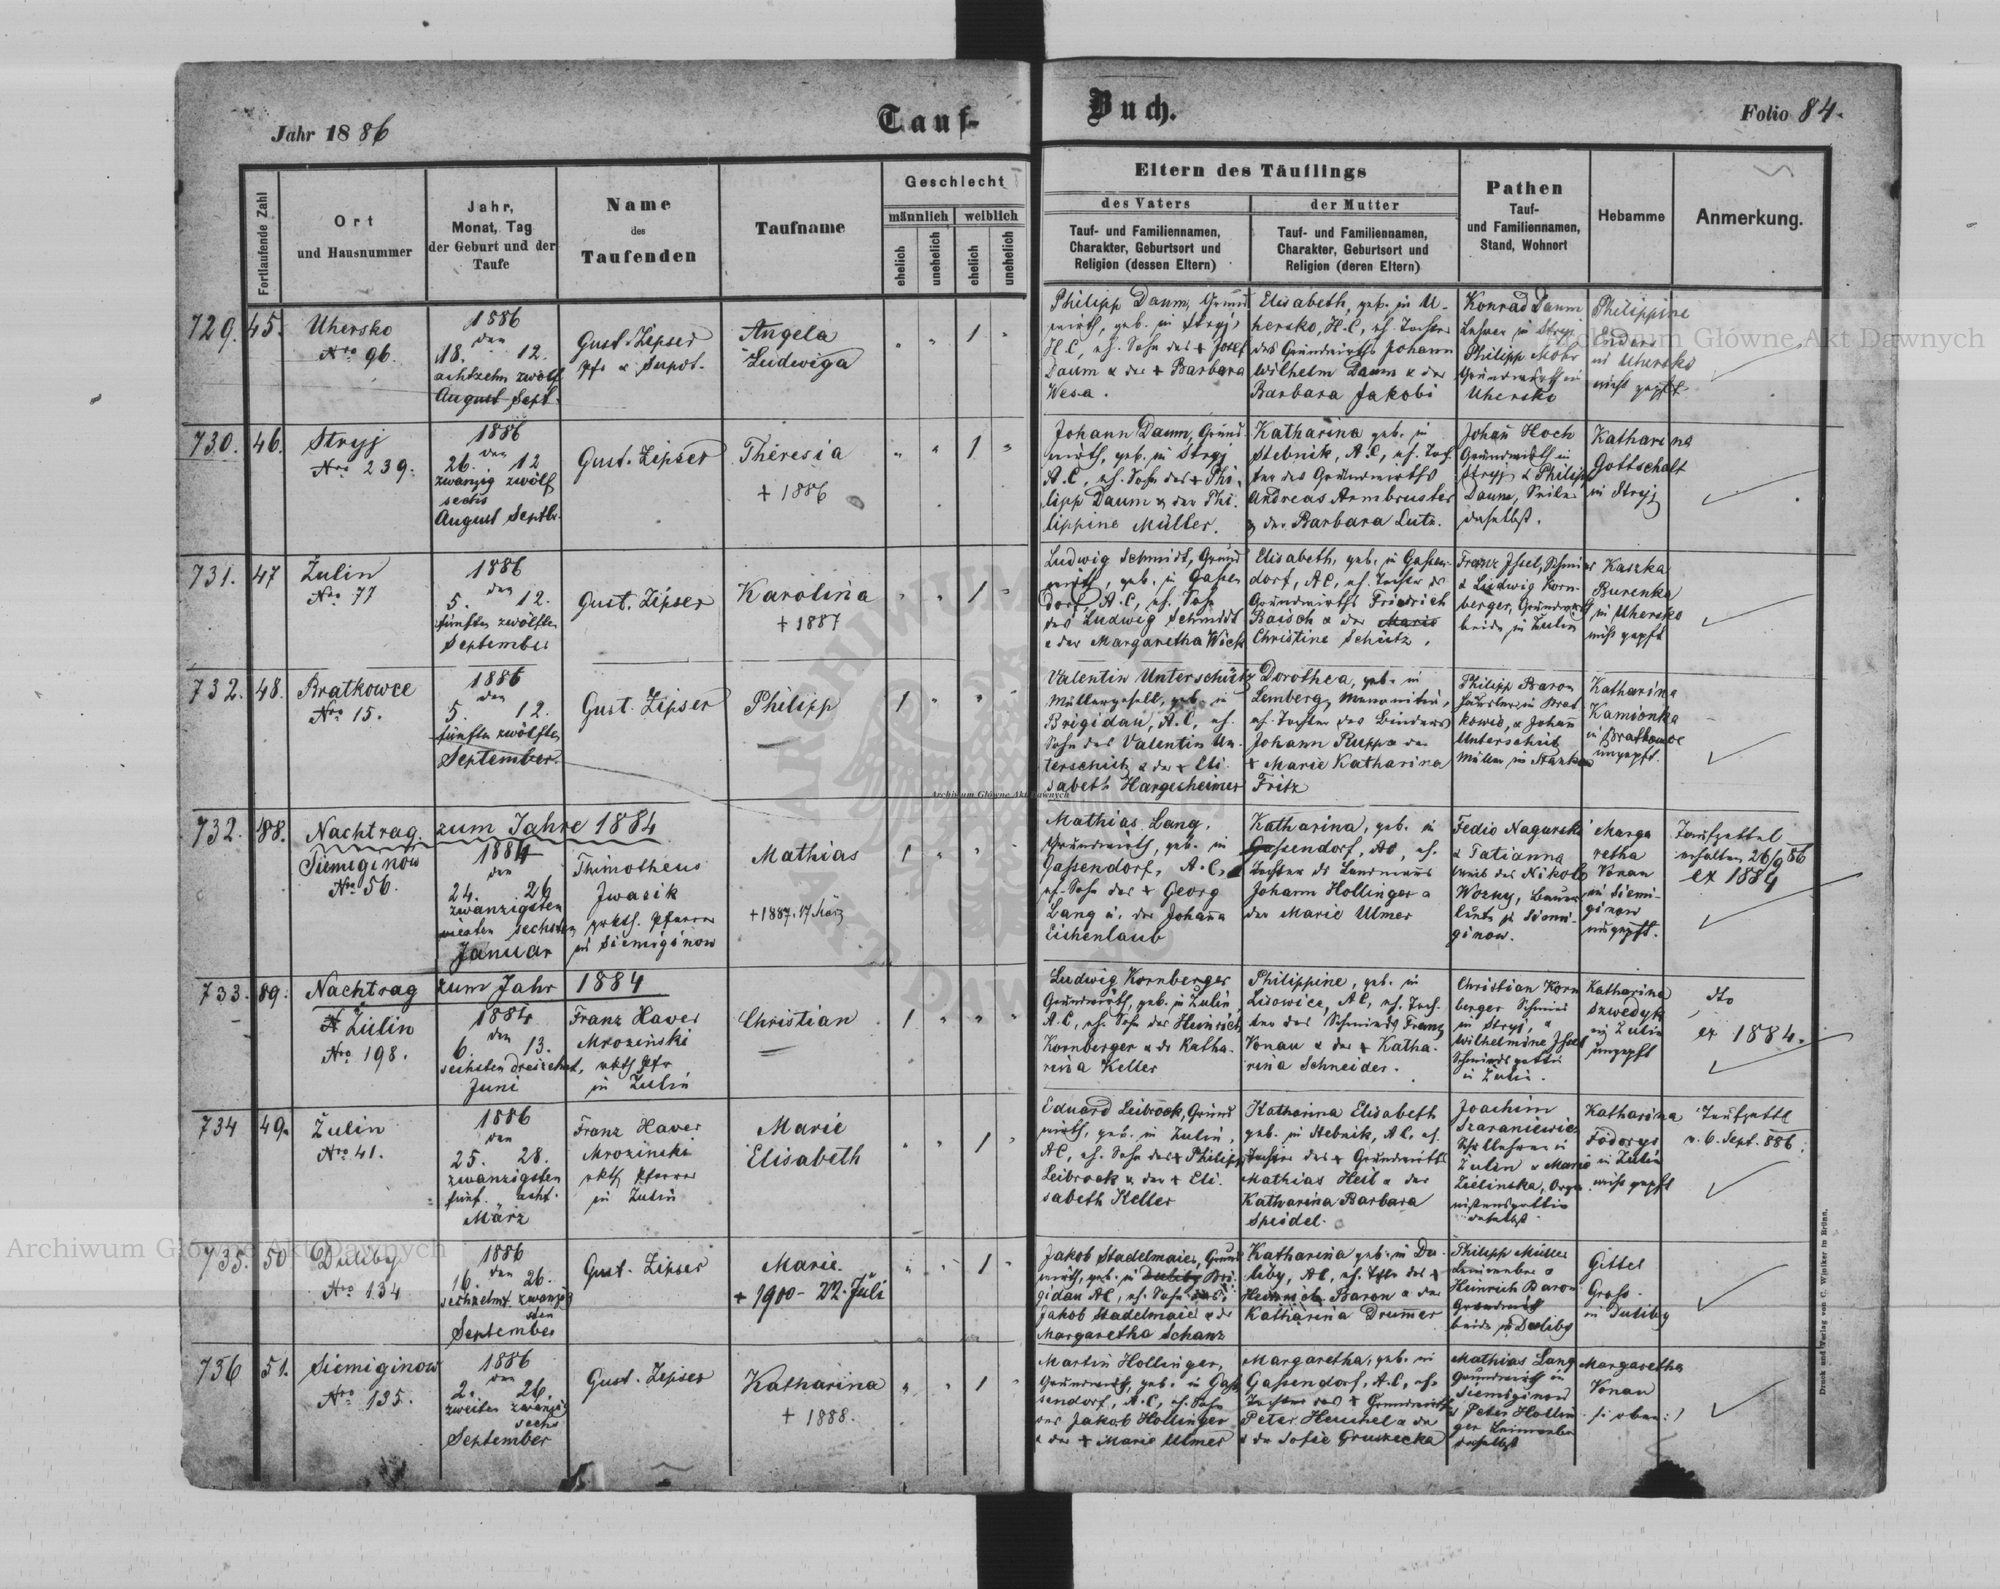 Jahr 1886
Tauf-
Buch.
Folio 84.
Fortlaufende Zahl
Ort
und Hausnummer
Jahr,
Monat, Tag
der Geburt und der
Taufe
Name
des
Taufenden
Taufname
Geschlecht
männlich
weiblich
ehelich
unehelich
ehelich
unehelich
Eltern des Täuflings
des Vaters
Tauf- und Familiennamen,
Charakter, Geburtsort und
Religion (dessen Eltern)
der Mutter
Tauf- und Familiennamen,
Charakter, Geburtsort und
Religion (deren Eltern)
Pathen
Tauf-
und Familiennamen,
Stand, Wohnort
Hebamme
Anmerkung.
729.
45.
Uhersko
Nro 96.
1886
den
18. 12.
achtzehn zwölf
August Sept.
Gust. Zipser
Angela
Ludwiga
1
Philipp Daum, Grund
wirth, geb. in Stryj,
H.C., eh. Sohn des + Josef
Daum u der + Barbara
Wesa.
Elisabeth, geb. in U-
hersko, H.C., eh. Tochter
des Grundwirths Johann
Wilhelm Daum u der
Barbara Jakobi
Konrad Daum
Lehrer in Stryj
Philipp Mohr
Grundwirth in
Uhersko
Philippine
in Uhersko
nicht gepft.
730.
46.
Stryj
Nro 239.
1886
den
26. 12
zwanzig zwölf
sechs
August Septbr.
Gust. Zipser
Theresia
+ 1886
1
Johann Daum, Grund
wirth, geb. in Stryj
A.C., eh. Sohn des + Phi-
lipp Daum u der Phi-
lippine Müller.
Katharina geb. in
Stebnik, A.C., eh. Toch
ter des Grundwirths
Andreas Armbruster
u der Barbara Lutz.
Johan Hoch
Grundwirth in
Stryj u Philipp
Daum,
daselbst.
Katharina
Gottschalk
in Stryj
731.
47
Zulin
Nro 77
1886
den
5. 12.
fünften zwölften
September
Gust. Zipser
Karolina
+ 1887
1
Ludwig Schmidt, Grund
wirth, geb. in Gassen
dorf, A.C., eh. Sohn
des Ludwig Schmidt
u der Margaretha Wick
Elisabeth, geb. in Gassen-
dorf, A.C., eh. Tochter des
Grundwirths Friedrich
Baisch u der Marie
Christine Schütz.
Franz Issel, Schmied
u Ludwig Korn-
berger, Grundwirth
beide in Zulin
Kaszka
Burenka
in Uhersko
nicht gepft
732.
48.
Bratkowce
Nro 15.
1886
den
5. 12.
fünften zwölften
September.
Gust. Zipser
Philipp
1
Valentin Unterschütz
Müllergesell, geb. in
Brigidau, A.C., eh.
Sohn des Valentin Un-
terschütz u der + Eli-
sabeth Hargesheimer
Dorothea, geb. in
Lemberg, Menonitin,
eh. Tochter des Binders
Johann Rupp u der
+ Marie Katharina
Fritz
Philipp Baron
Häusler in Brat
kowce, u Johann
Unterschütz
Müller in
Katharina
Kamionka
in Bratkowce
ungepft.
732.
88.
Nachtrag zum Jahre 1884
Siemiginow
Nro 56.
1884
den
24. 26
zwanzigsten
vierten sechsten
Januar
Thimotheus
Iwasik
grkth. Pfarrer
in Siemiginow
Mathias
+ 1887. 17 März
1
Mathias Lang,
Grundwirth, geb. in
Gassendorf, A.C.,
eh. Sohn des + Georg
Lang u. der Johanna
Eichenlaub
Katharina, geb. in
Gassendorf, AC, eh.
Tochter des Landmanns
Johann Hollinger u
der Marie Ulmer
Fedio Nagurski
u Tatianna
Weib des Nikola
Worny, Bauers
leute in Siemi-
ginow.
Marga
retha
Vonau
in Siemi-
ginow
ungepft.
Taufzettel
erhalten 26/9 86
ex 1884
733.
89.
Nachtrag zum Jahr 1884
Zulin
Nro 198.
1884
den
6. 13.
sechsten dreizehnt,
Juni
Franz Xaver
Mrozinski
rkth Pfr
in Zulin
Christian
1
Ludwig Kornberger
Grundwirth, geb. in Zulin,
A.C., eh. Sohn des Heinrich
Kornberger u der Katha-
rina Keller
Philippine, geb. in
Lisowice, AC, eh. Toch-
ter des Schmieds Franz
Vonau u der + Katha-
rina Schneider.
Christian Korn
berger Schmied
in Stryj, u
Wilhelmine Issel
Schmieds gattin
in Zulin.
Katharina
Szwedyk
in Zulin
ungepft
dto
ex 1884.
734
49.
Zulin
Nro 41.
1886
den
25. 28.
zwanzigsten
fünf. acht.
März
Franz Xaver
Mrozinski
rkth Pfarrer
in Zulin
Marie
Elisabeth
1
Eduard Leibrock, Grund
wirth, geb. in Zulin,
AC, eh. Sohn des + Philipp
Leibrock u der + Eli-
sabeth Keller
Katharina Elisabeth
geb. in Stebnik, AC, eh.
Tochter des + Grundwirths
Mathias Heil u der
Katharina Barbara
Speidel.
Joachim
Szaraniewicz
Schullehrer in
Zulin u Marie
Zielinska, Orga
nistensgattin
daselbst
Katharina
Fedorys
in Zulin
nicht gepft
Taufzettl
v. 6. Sept. 886.
735.
50
Duliby
Nro 134
1886
den
16. 26.
sechzehnt. zwanzig
sten
September
Gust. Zipser
Marie.
+ 1900 - 22. Juli
1
Jakob Stadelmaier, Grund
wirth, geb. in Duliby Bri-
gidau AC, eh. Sohn des
Jakob Stadelmaier u der
Margaretha Schanz
Katharina geb. in Du-
liby, AC, eh. Tchtr des +
Heinrich Baron u der
Katharina Drummer
Philipp Müller
Heinrich Baron
Grundwirth
beide in Duliby
Gittel
Gross.
in Duliby
736
51.
Siemiginow
Nro 135.
1886
den
2. 26.
zweiten zwanzig
sechs
September
Gust. Zipser
Katharina
+ 1888.
1
Martin Hollinger,
Grundwirth, geb. in Gas
sendorf, A.C., eh. Sohn
des Jakob Hollinger
u der + Marie Ulmer
Margaretha, geb. in
Gassendorf, A.C., eh.
Tochter des + Grundwirths
Peter Hennel u der
u der Sofie Gruszecka
Mathias Lang
Grundwirth in
Siemiginow
u Peter Hollin
ger
daselbst
Margaretha
Vonau
/: oben :/
Druck und Verlag von C. Winiker in Brünn.
Archiwum Główne Akt Dawnych
Archiwum Główne Akt Dawnych
Archiwum Główne Akt Dawnych
ARCHIWUM
AKT DAWNYCH